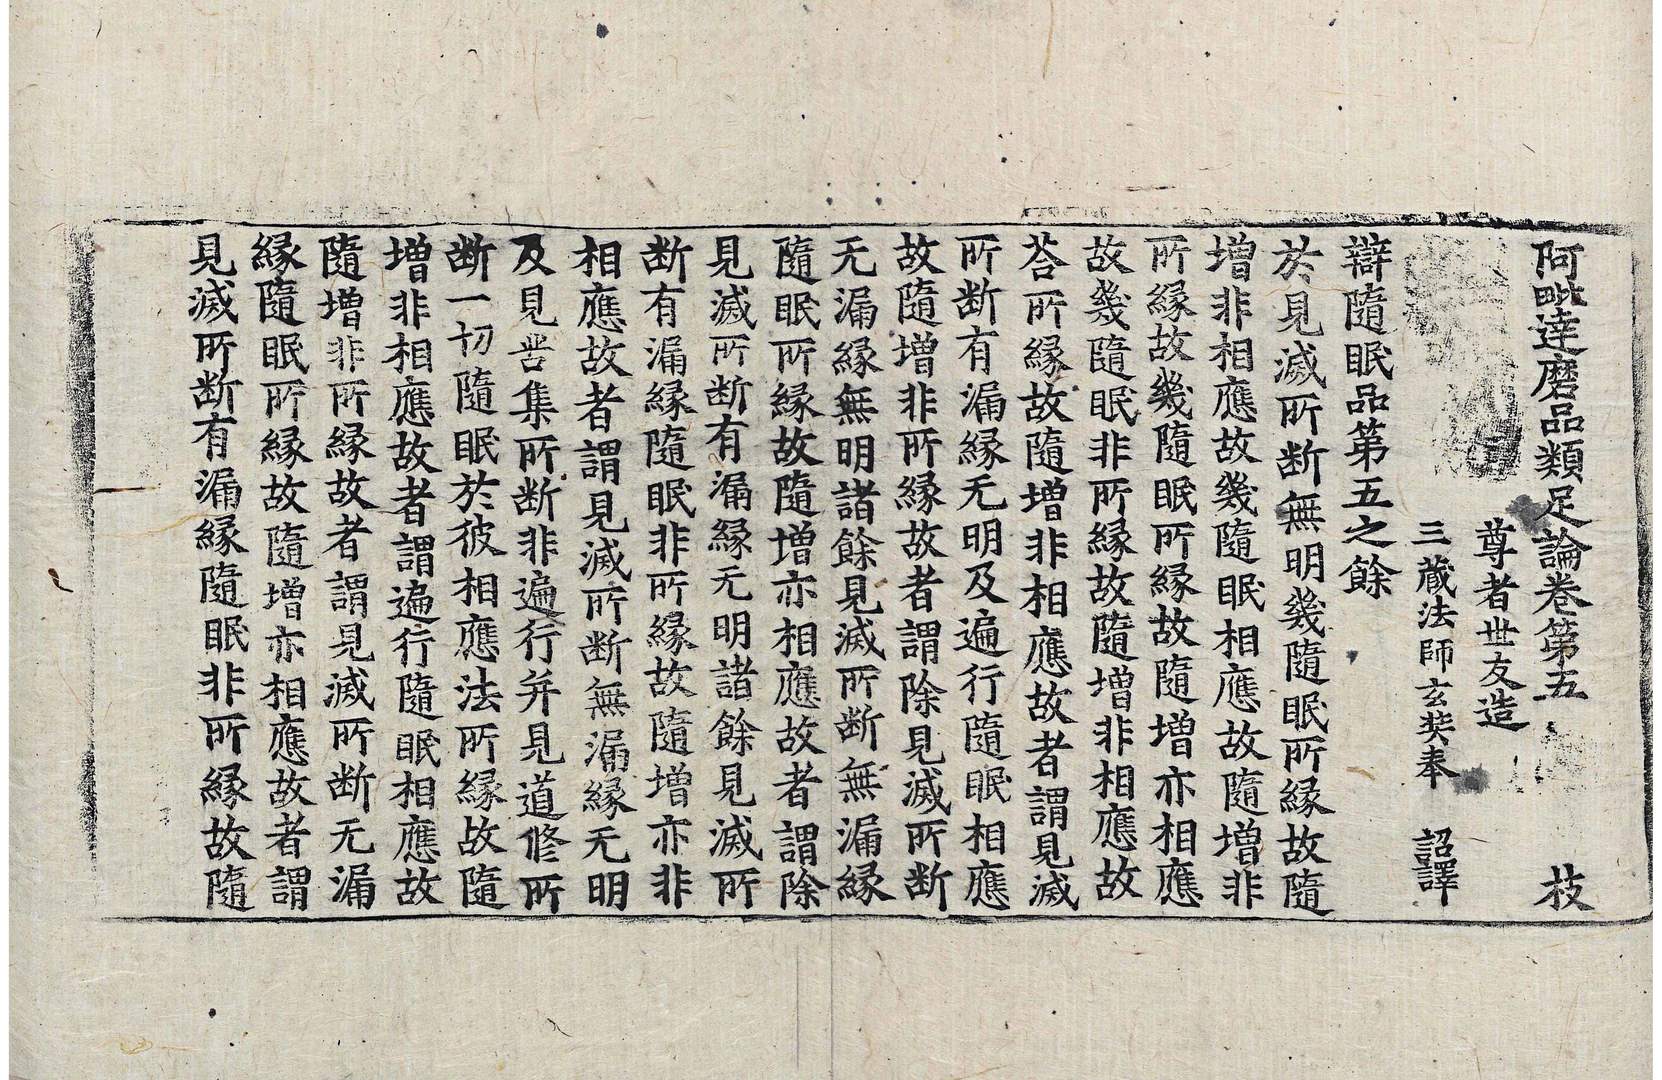 阿毗達磨品類足論卷第五 枝
尊者世友造
三藏法師玄奘奉 詔譯
辯隨眠品第五之餘
於見滅所斷無明幾隨眠所緣故隨
增非相應故幾隨眠相應故隨增非
所緣故幾隨眠所緣故隨增亦相應
故幾隨眠非所緣故隨增非相應故
荅所緣故隨增非相應故者謂見滅
所斷有漏緣无明及遍行隨眠相應
故隨增非所緣故者謂除見滅所斷
无漏緣無明諸餘見滅所斷無漏緣
隨眠所緣故隨增亦相應故者謂除
見滅所斷有漏緣无明諸餘見滅所
断有漏緣隨眠非所緣故隨增亦非
相應故者謂見滅所断無漏緣无明
及見苦集所断非遍行并見道修所
断一切隨眠於彼相應法所緣故隨
增非相應故者謂遍行隨眠相應故
隨增非所緣故者謂見滅所断无漏
緣隨眠所緣故隨增亦相應故者謂
見滅所断有漏緣隨眠非所緣故隨